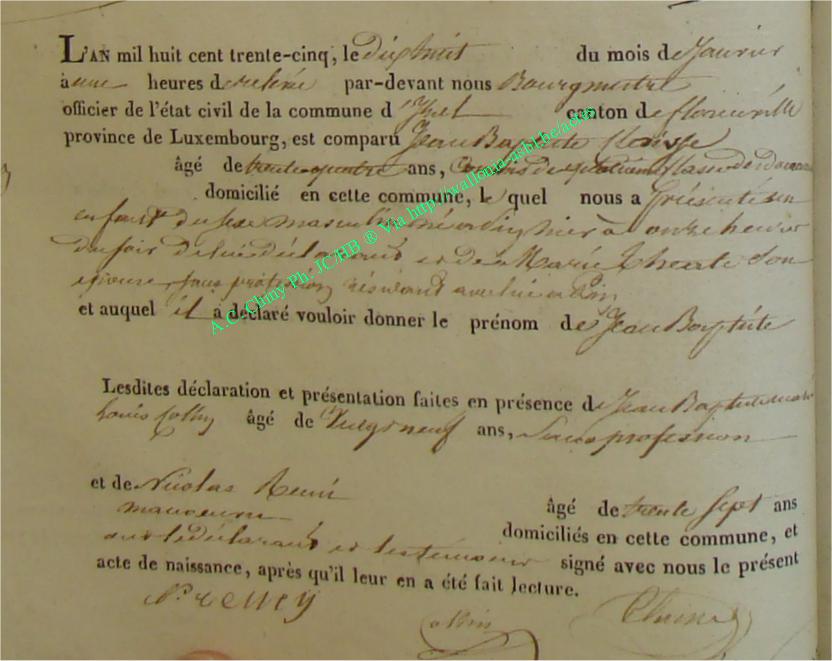 L'AN mil huit cent trente-cinq, le dixhuit du mois de Janvier
à une heures de relevée par-devant nous Bourgmestre
officier de l'état civil de la commune d canton de florenville
province de Luxembourg, est comparu Jean Baptiste
âgé de trente quatre ans,
domicilié en cette commune, le quel nous a présenté un
enfant du sexe masculin né hier à onze heures
du soir de lui déclarant et de Marie son
épouse sans profession résidant avec lui
et auquel il a déclaré vouloir donner le prénom de Jean Baptiste
Lesdites déclaration et présentation faites en présence de Jean Baptiste
Louis âgé de vingt neuf ans, sans profession
et de Nicolas Remi âgé de trente sept ans
manoeuvre domiciliés en cette commune, et
ont le déclarant et les témoins signé avec nous le présent
acte de naissance, après qu'il leur en a été fait lecture.
A.C. Chiny Ph. JC/HB ® Via http://wallonia-asbl.be/actes